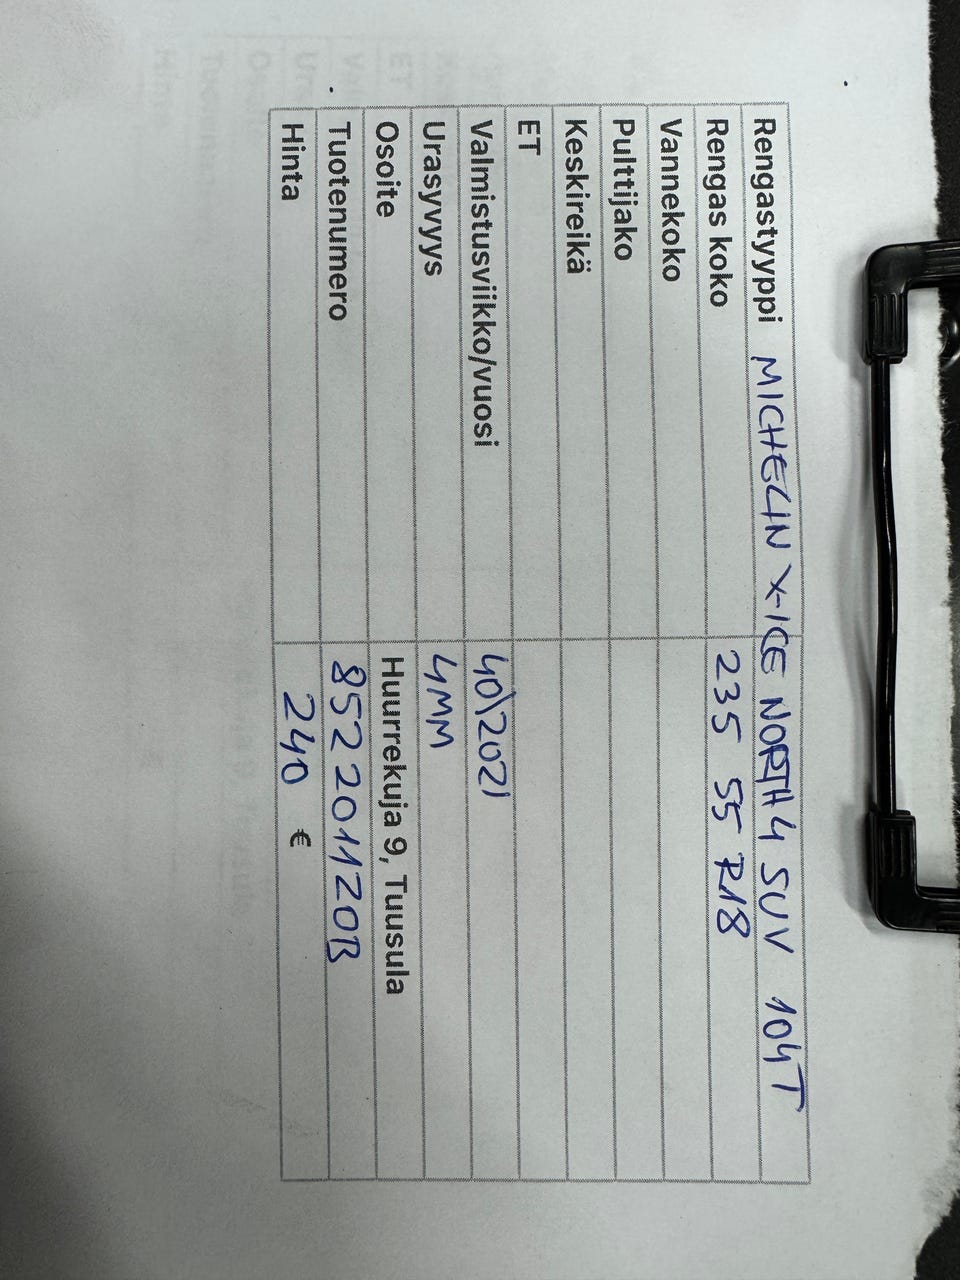 Rengastyyppi MICHELIN X-ICE NORTH 4 SUV 104T
Rengas koko 235 55 R18
Vannekoko
Pulttijako
Keskireikä
ET
Valmistusviikko/vuosi 40\2021
Urasyvyys 4MM
Osoite Huurrekuja 9, Tuusula
Tuotenumero 852201120B
Hinta 240 €